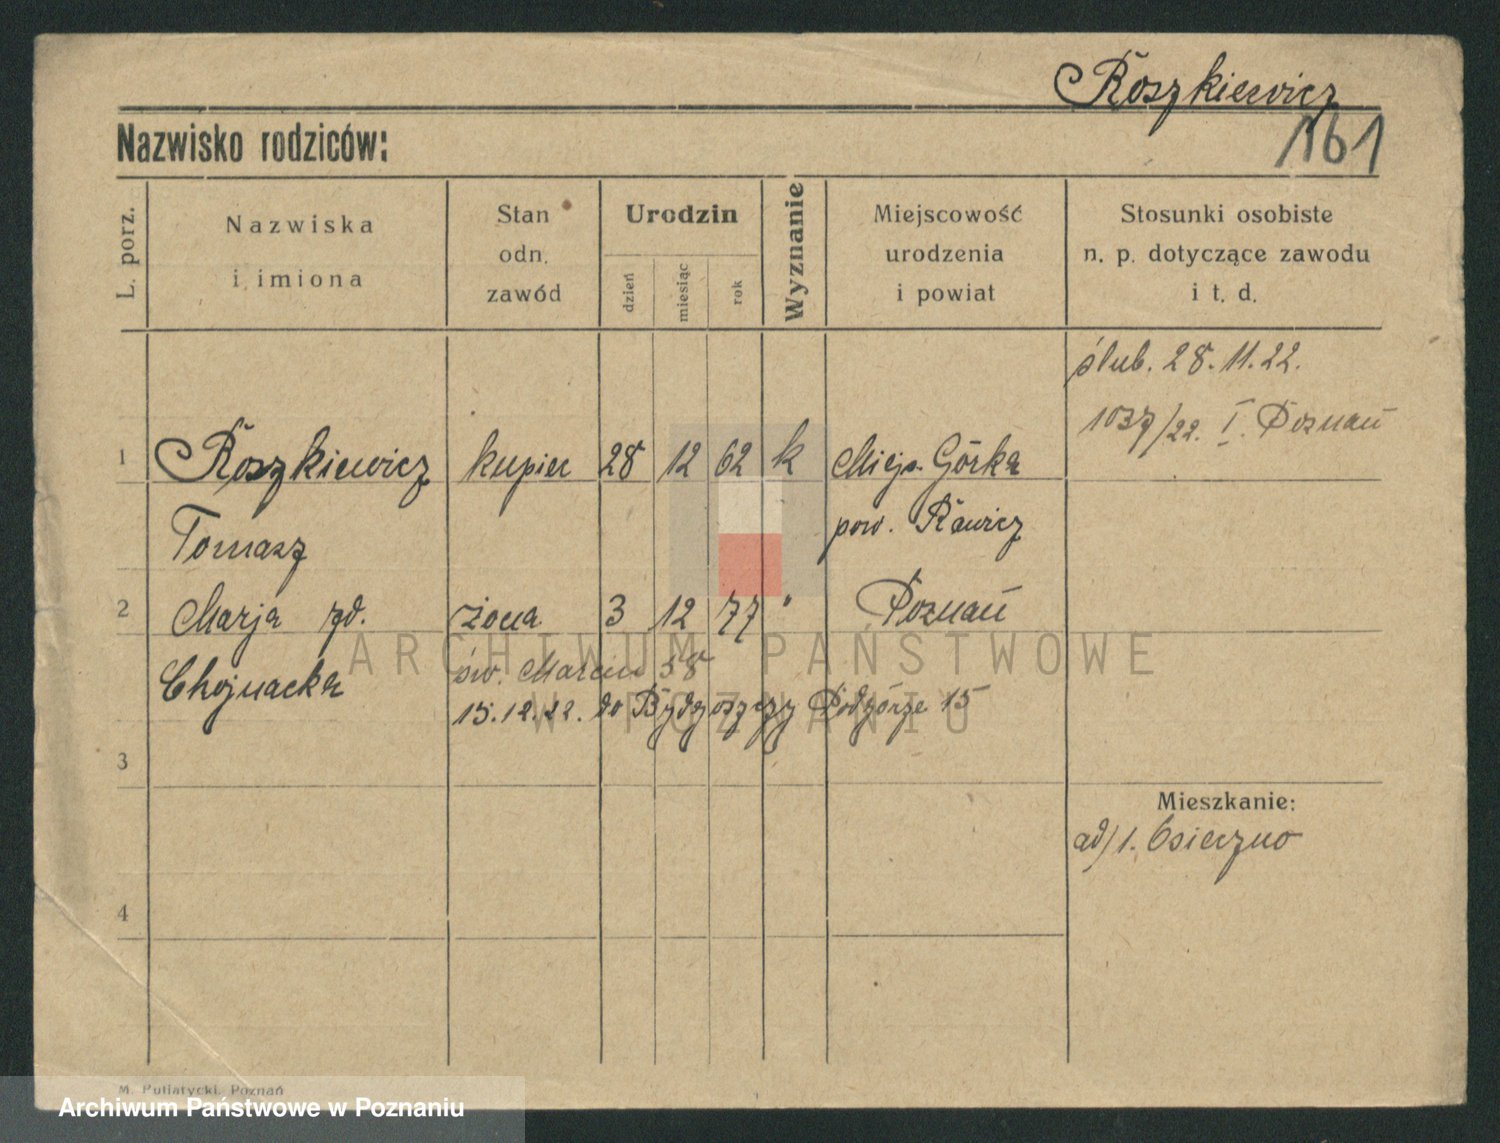 Roszkiewicz
161
Nazwisko rodziców:
L. porz.
Nazwiska
i imiona
Stan
odn.
zawód
Urodzin
dzień
miesiąc
rok
Wyznanie
Miejscowość
urodzenia
i powiat
Stosunki osobiste
n. p. dotyczące zawodu
i t. d.
ślub. 28.11.22.
1037/22. I. Poznań
1 Roszkiewicz kupiec 28 12 62 k Miejs. Górka
Tomasz pow. Rawicz
2 Marja zd. żona 3 12 77 " Poznań
Chojnacka św. Marcin 58
15.12.22. do Bydgoszczy Podgórze 15
3
Mieszkanie:
ad/1. Osieczno
4
ARCHIWUM PAŃSTWOWE
W POZNANIU
M. Putiatycki, Poznań
Archiwum Państwowe w Poznaniu